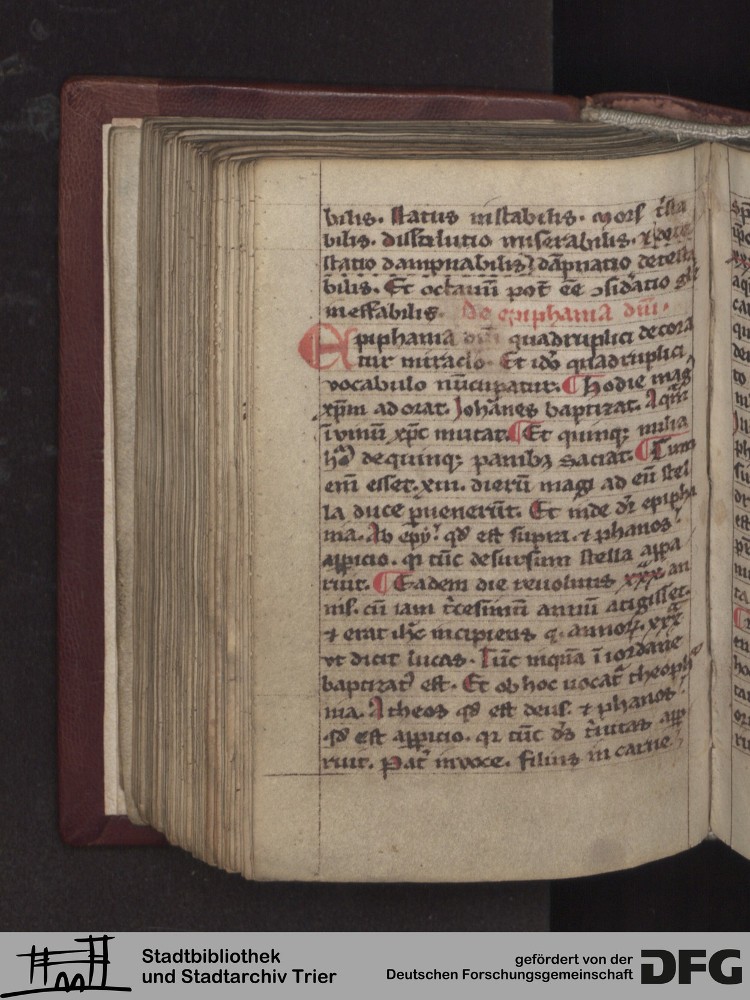 bilis. status instabilis. mors t̃ſta
bilis. dissolutio miserabilis.
statio dampnabilis. dãpnatio detesta
bilis. Et octauũ pot̃ eẽ ↄsid̾atio gl̃e
ineffabilis. De epiphania dñi.
Epiphania dñi quadruplici decora
tur miraclo. Et idõ quadruplici
vocabulo nũcupatur. ¶ Hodie magi
xp̃m adorat. Johãnes baptizat. Aqm̃
ĩ vinũ xp̃c mutat. ¶ Et quinq; milia
hõ de quinq; panibꝫ saciat. ¶ Cum
em̃ esset .xiii. dierũ magi ad eũ stel
la duce p̃uenerũt. Et inde dr̃ epipha
nia. Ab epy qđ est supra. ⁊ phanos
appicio. qi tũc desursum stella appa
ruit. ¶ Eadem die reuolutis xxx an
nis. cũ iam t̾cesimũ annũ atigisset.
⁊ erat ih̃c incipiens q. annoꝝ. xxx
vt dicit lucas. Tũc inquã ĩ iordane
baptizat᷒ est. Et ob hoc uocat᷒ theopha
nia. A theos qđ est deus. ⁊ phanos
qđ est appicio. qi tũc d̃s t̾nitas app
ruit. Pat̃ in voce. filius in carne
Stadtbibliothek
und Stadtarchiv Trier
gefördert von der
Deutschen Forschungsgemeinschaft
DFG